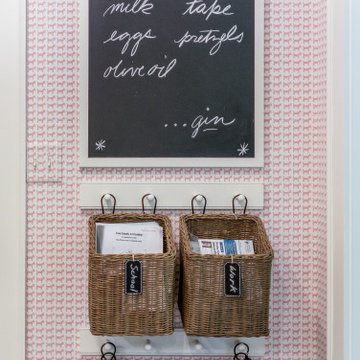 milk tape
eggs pretzels
olive oil
...gin
School
Work